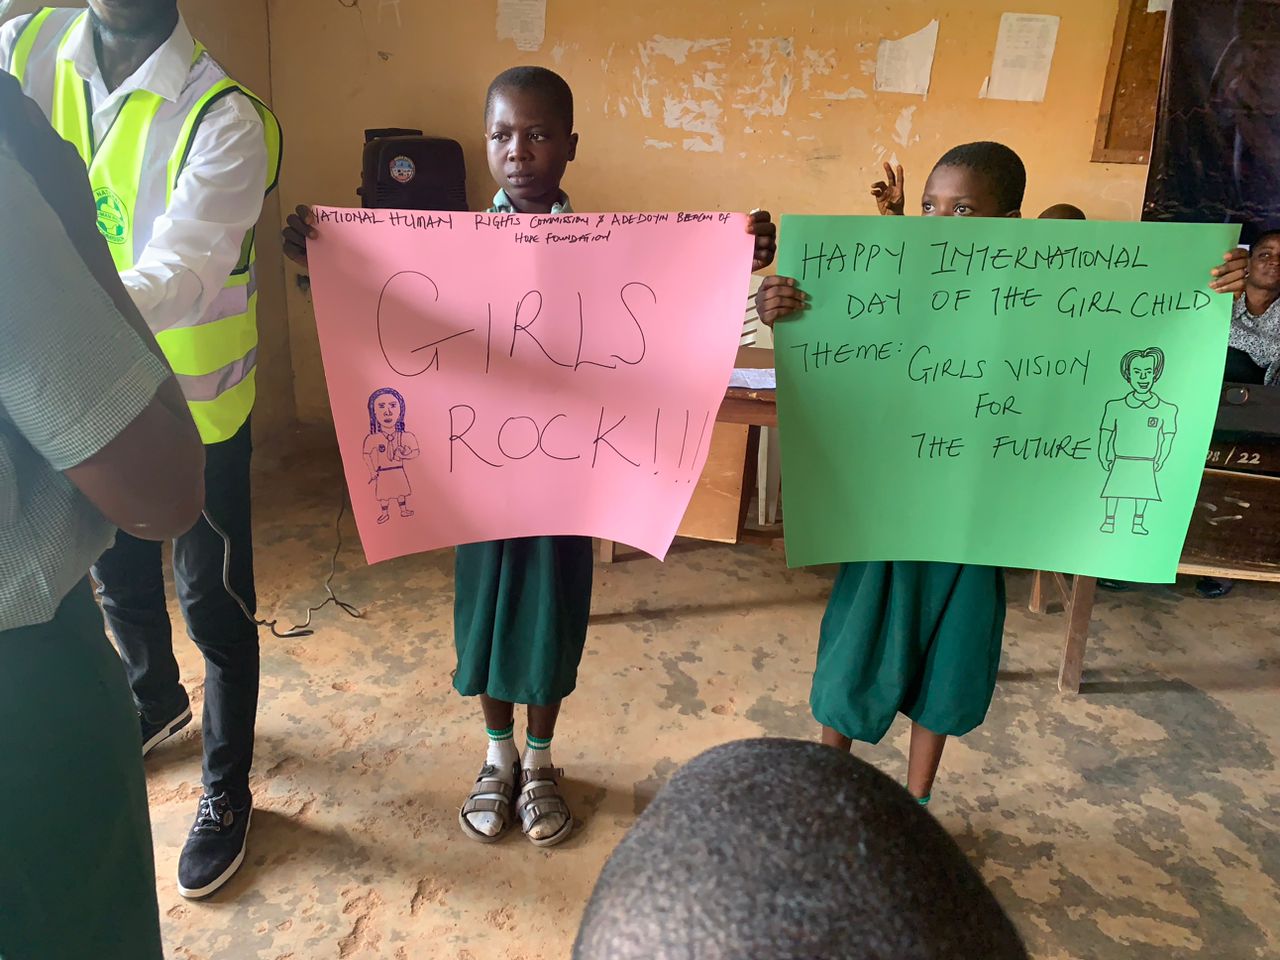 NATIONAL HUMAN RIGHTS COMMISSION & ADEDOYIN BEACON OF
HOPE FOUNDATION
GIRLS
ROCK!!!
HAPPY INTERNATIONAL
DAY OF THE GIRL CHILD
THEME: GIRLS VISION
FOR
THE FUTURE
08/22